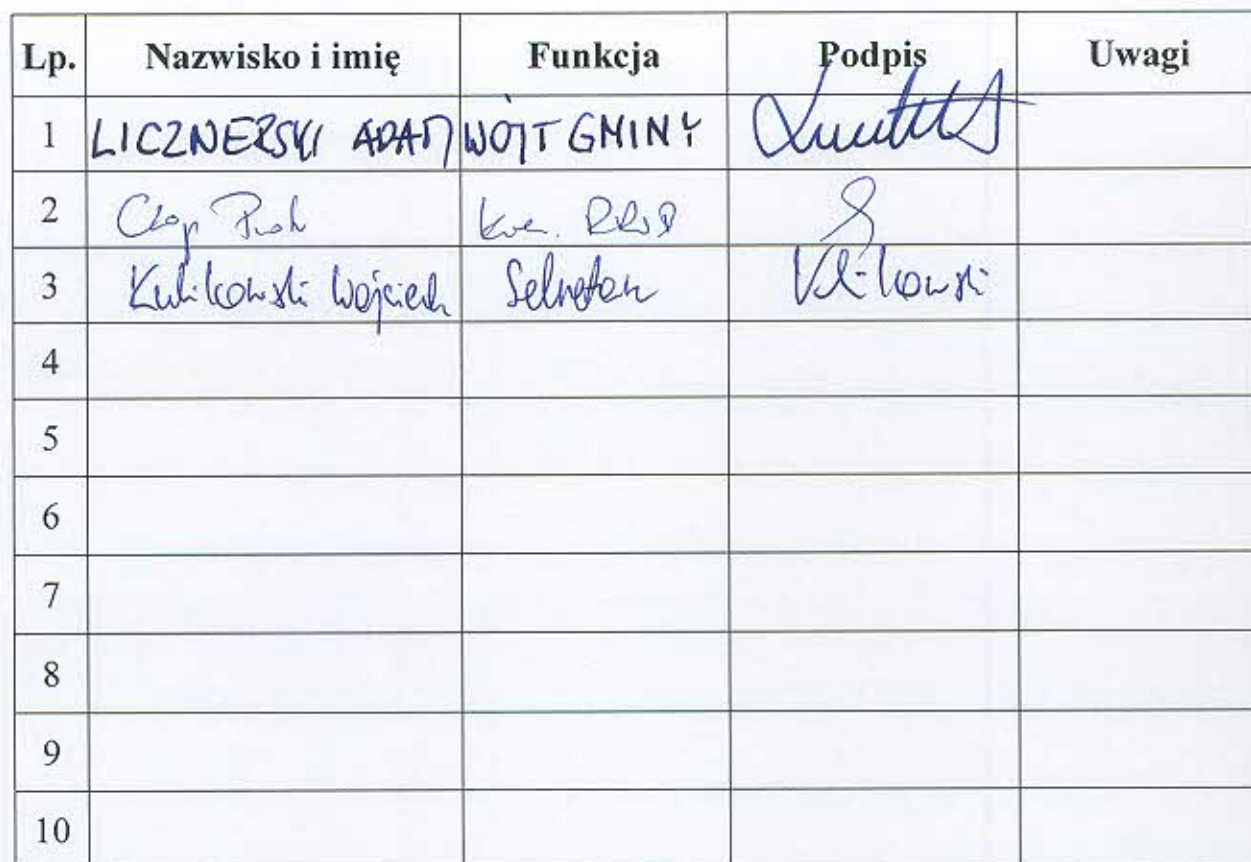 Lp. Nazwisko i imię Funkcja Podpis Uwagi
1 LICZNERSKI ADAM WÓJT GMINY
2 Piotr
3 Kulikowski Wojciech Sekretarz Kulikowski
4
5
6
7
8
9
10